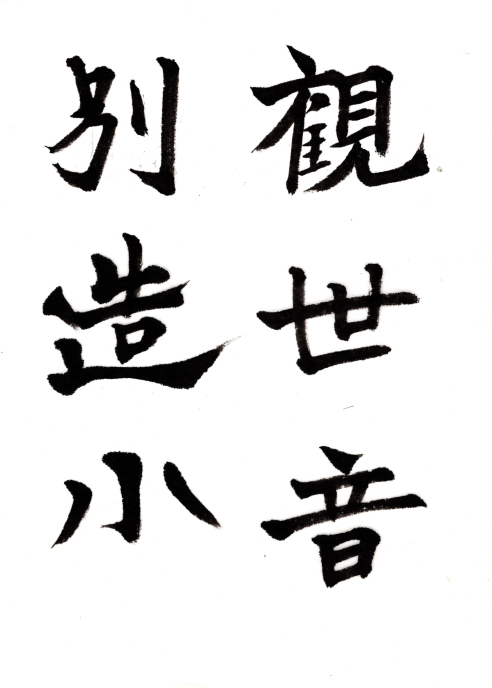 観世音
別造小